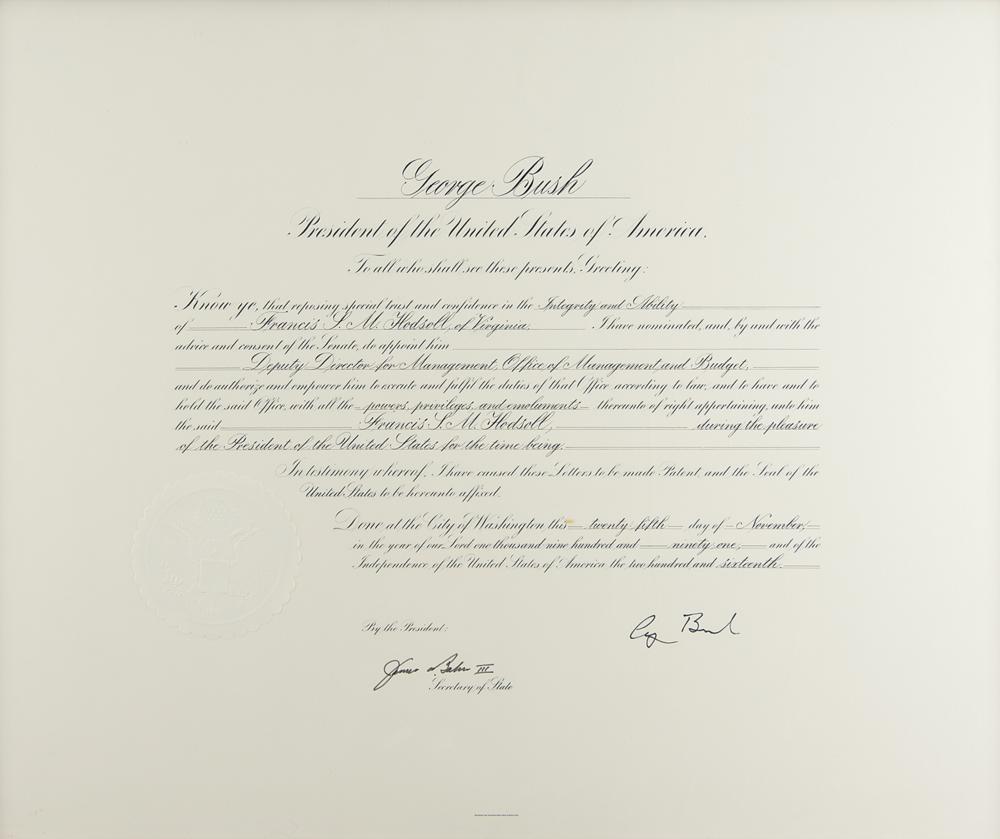 George Bush
President of the United States of America.
To all who shall see these presents, Greeting:
Know ye, that reposing special trust and confidence in the Integrity and Ability
of Francis S. M. Hodsoll, of Virginia, I have nominated, and, by and with the
advice and consent of the Senate, do appoint him
Deputy Director for Management, Office of Management and Budget,
and do authorize and empower him to execute and fulfil the duties of that Office according to law, and to have and to
hold the said Office, with all the powers, privileges, and emoluments thereunto of right appertaining, unto him
the said Francis S. M. Hodsoll, during the pleasure
of the President of the United States for the time being.
In testimony whereof, I have caused these Letters to be made Patent, and the Seal of the
United States to be hereunto affixed.
Done at the City of Washington this twenty fifth day of November,
in the year of our Lord one thousand nine hundred and ninety one, and of the
Independence of the United States of America the two hundred and sixteenth.
By the President:
G Bush
James A. Baker III
Secretary of State